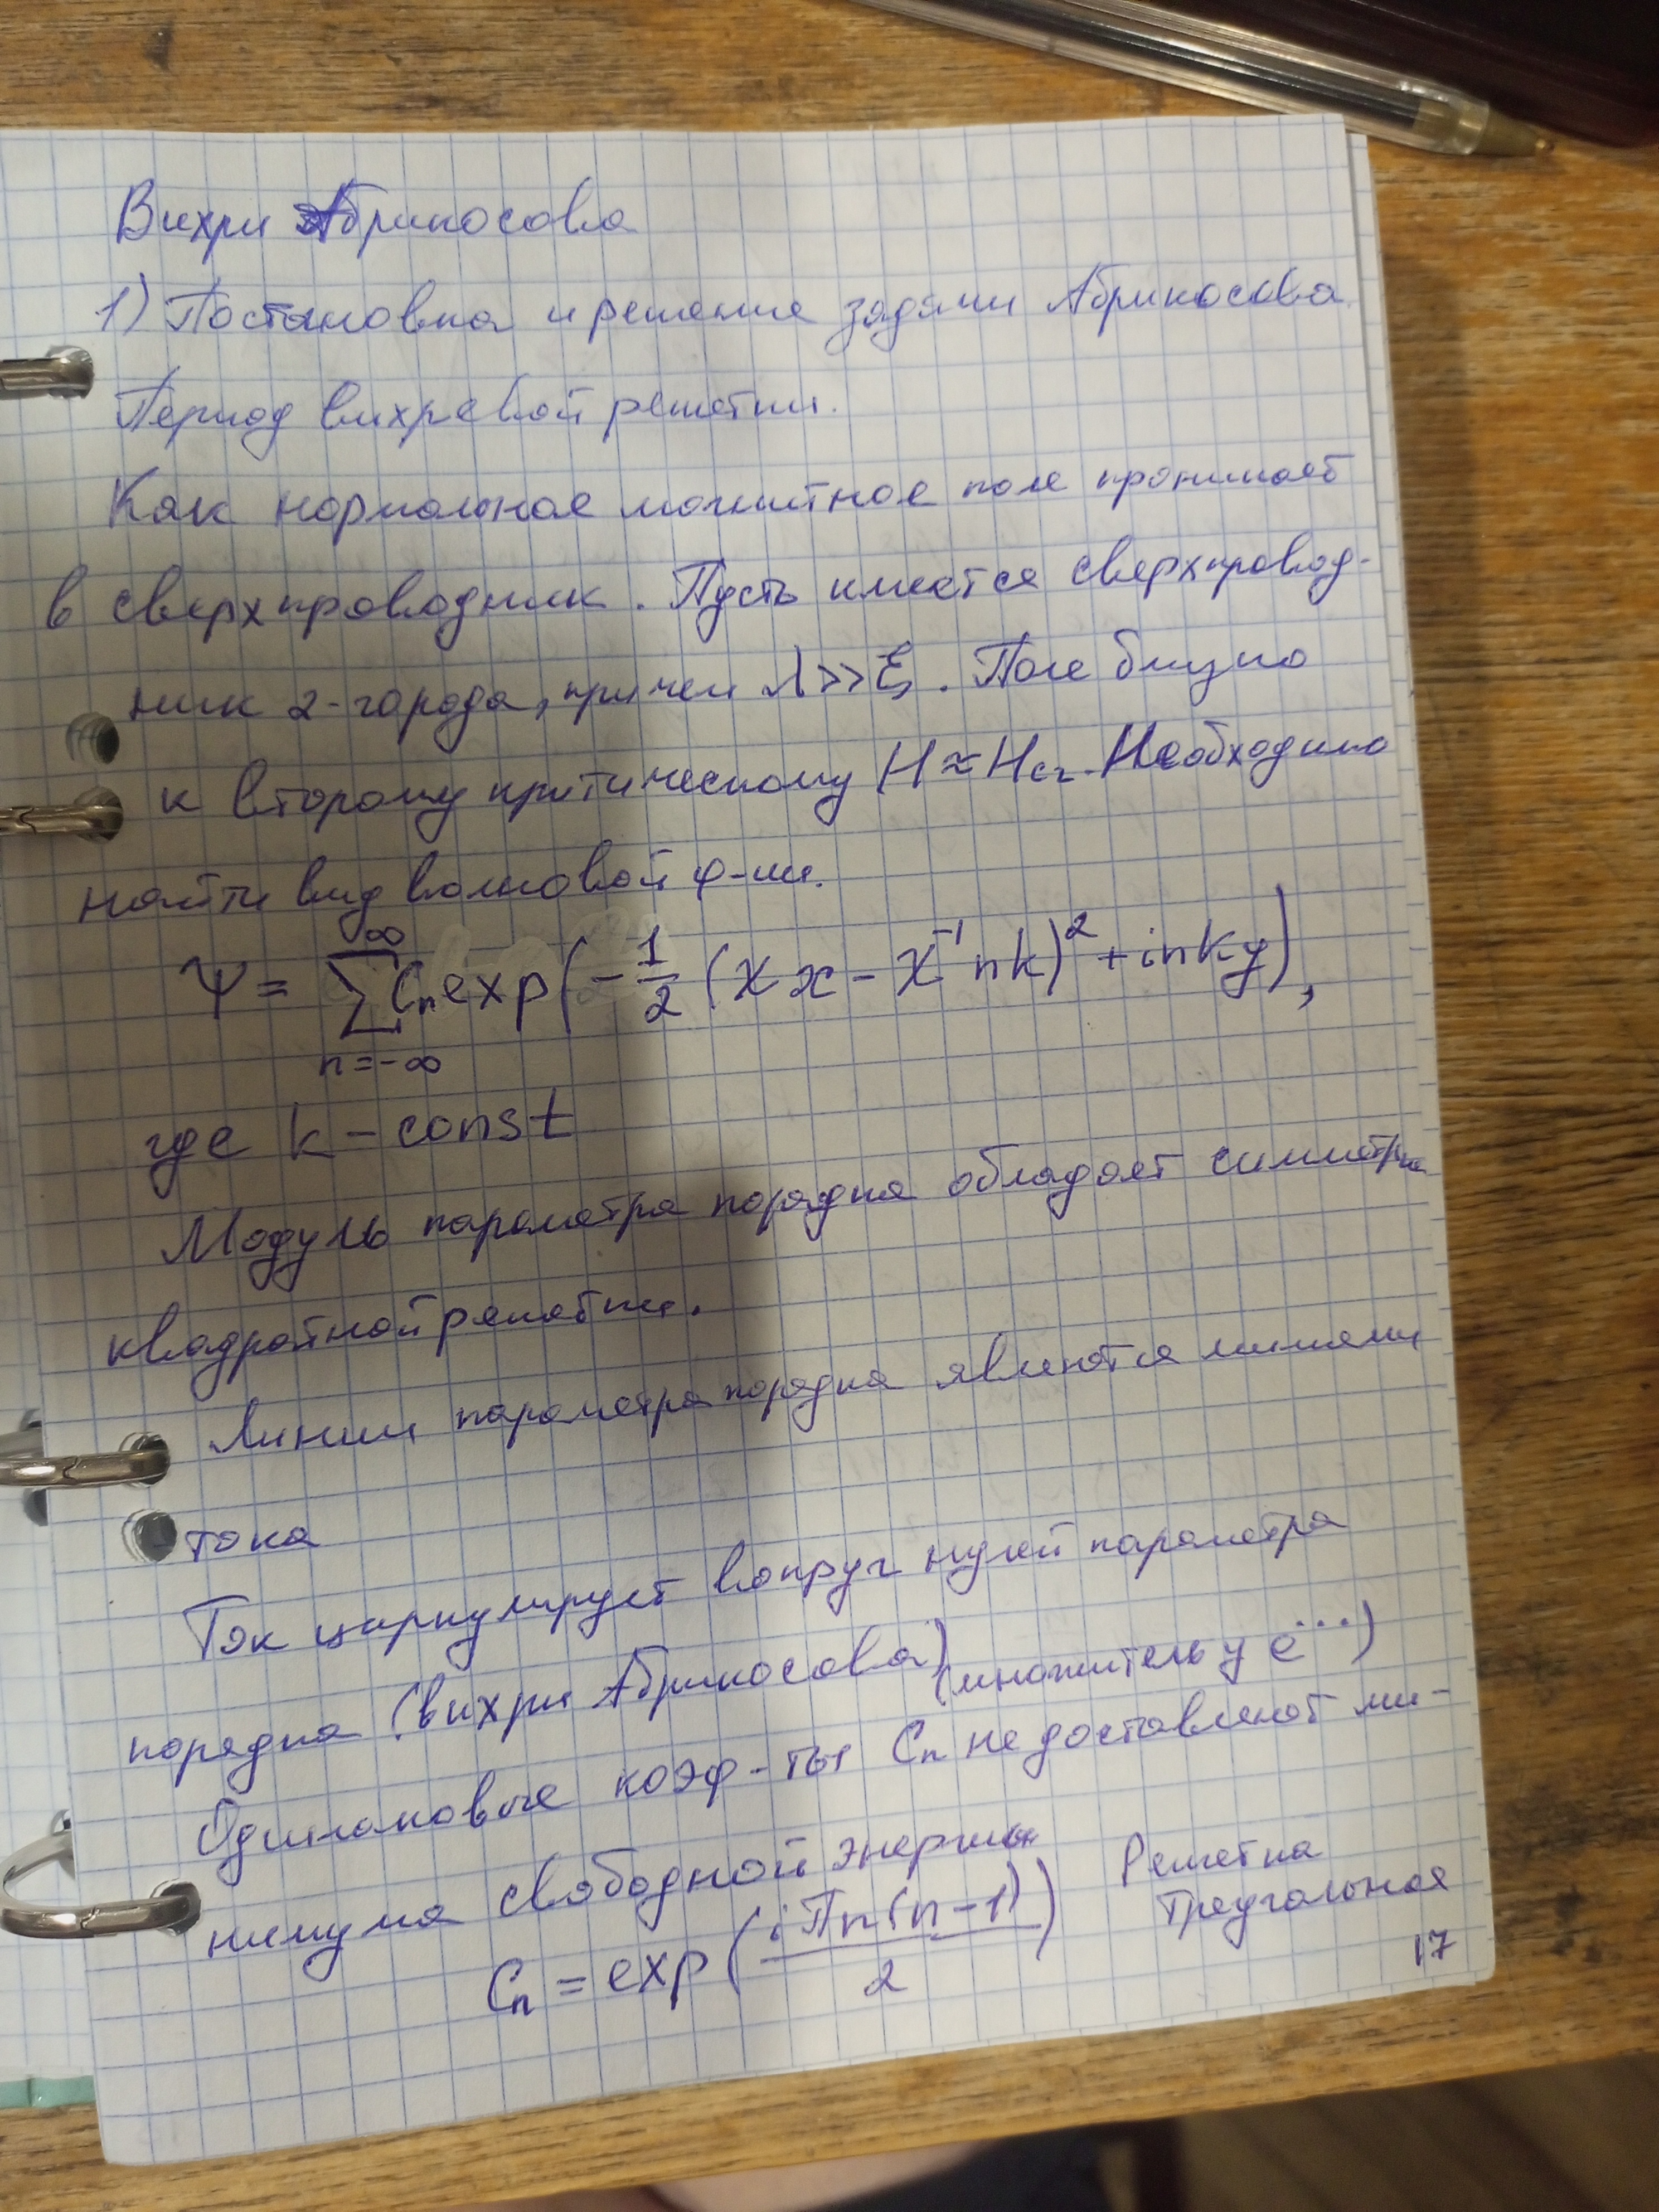 Вихри Абрикосова
1) Постановка и решение задачи Абрикосова.
Период вихревой решетки.
Как нормальное магнитное поле проникает
в сверхпроводник. Пусть имеется сверхпровод-
ник 2-города, причем λ>>ξ. Поле близко
к второму критическому H≈Hc₂. Необходимо
найти вид волновой ф-ии.
Ψ = ∑_{n=-∞}^{∞} Cₙ exp(-1/2 (χx - χ⁻¹nk)² + inky),
где k - const
Модуль параметра порядка обладает симметрией
квадратной решетки.
Линии параметра порядка являются линиями
тока
Ток циркулирует вокруг нулей параметра
порядка (вихри Абрикосова) (множитель у e^...)
Одинаковые коэф-ты Cₙ не доставляют ми-
нимума свободной энергии
Cₙ = exp(iπn(n-1)/2) Решетка
треугольная
17